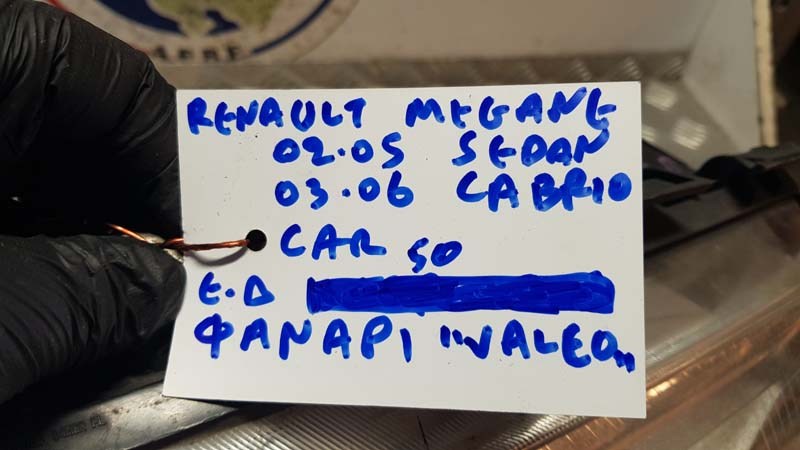 RENAULT MEGANE
02.05 SEDAN
03.06 CABRIO
CAR 50
Ε.Δ
ΦΑΝΑΡΙ "VALEO"